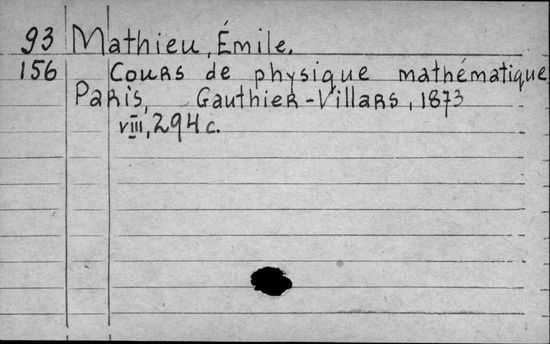 93 Mathieu, Émile.
156 Cours de physique mathématique
Paris, Gauthier-Villars, 1873
VIII, 294 c.